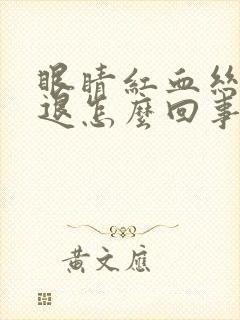 眼睛紅血絲
退怎麼回事
黃文應